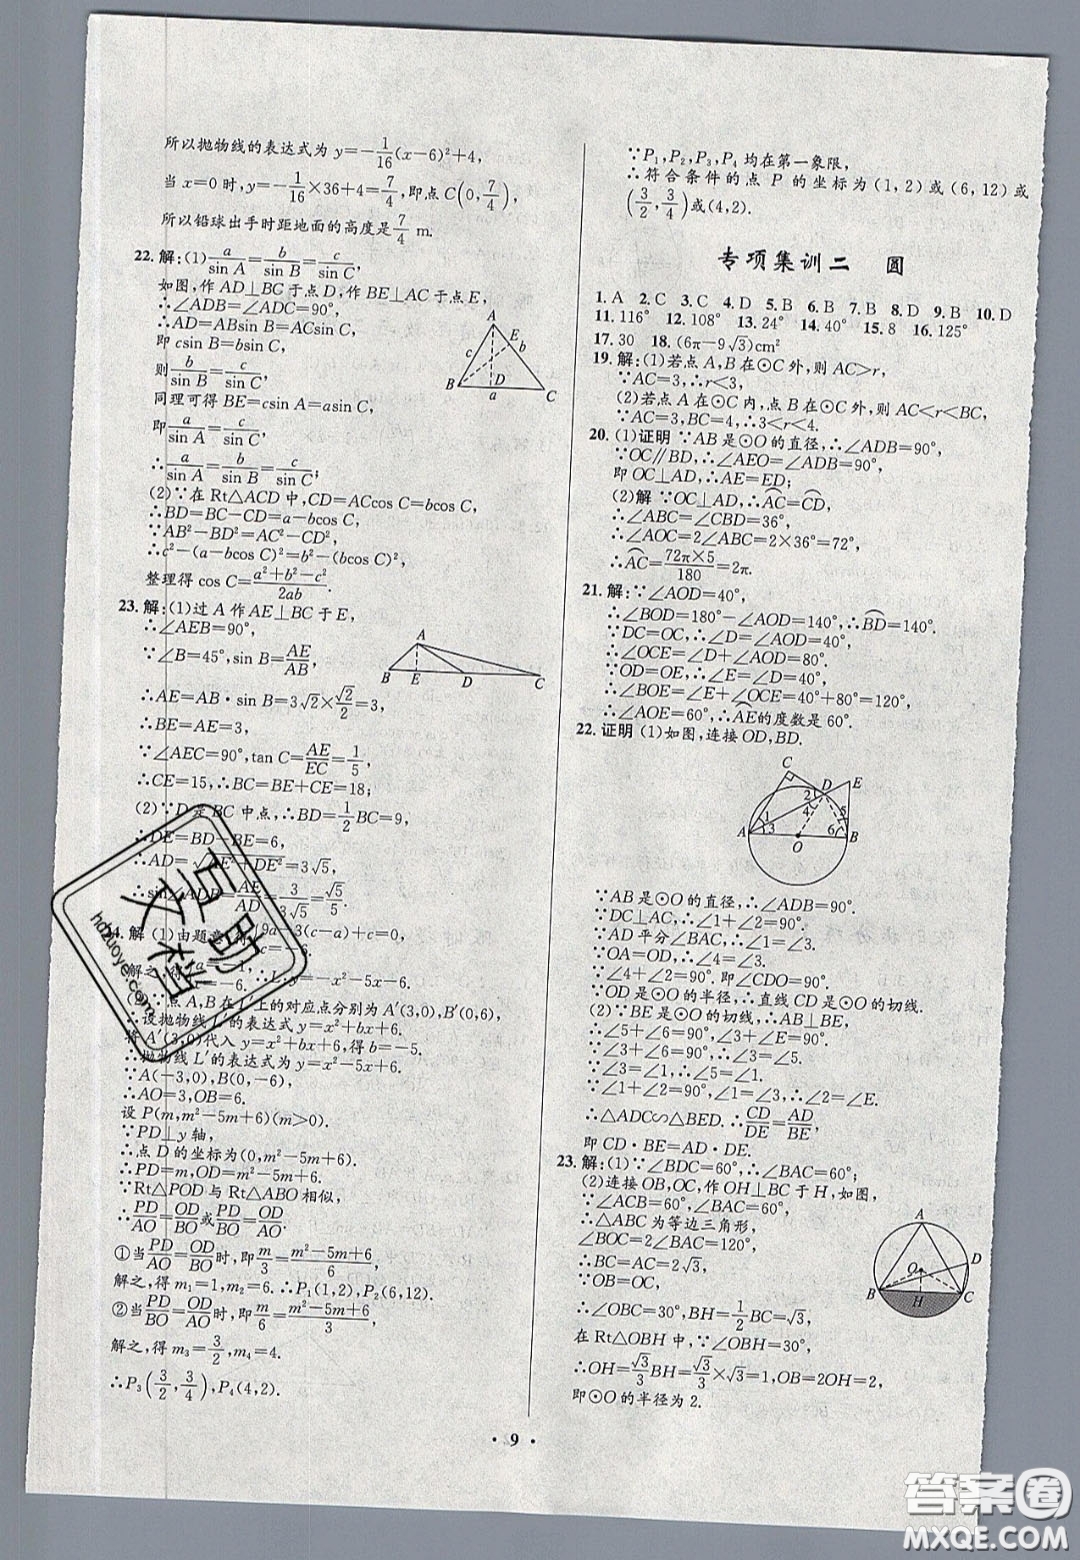 所以抛物线的表达式为 y=-1/16(x-6)²+4,
当 x=0 时,y=-1/16×36+4=7/4,即点 C(0,7/4),
所以铅球出手时距地面的高度是7/4 m.
22. 解:(1)a/sin A=b/sin B=c/sin C,
如图,作 AD⊥BC 于点 D,作 BE⊥AC 于点 E,
∴∠ADB=∠ADC=90°,
∴AD=ABsin B=ACsin C,
即 csin B=bsin C,
则b/sin B=c/sin C,
同理可得 BE=csin A=asin C,
即a/sin A=c/sin C,
∴a/sin A=b/sin B=c/sin C;
(2)∵在 Rt△ACD 中,CD=ACcos C=bcos C,
∴BD=BC-CD=a-bcos C,
∵AB²-BD²=AC²-CD²,
∴c²-(a-bcos C)²=b²-(bcos C)²,
整理得 cos C=a²+b²-c²/2ab.
23. 解:(1)过 A 作 AE⊥BC 于 E,
∴∠AEB=90°,
∵∠B=45°,sin B=AE/AB,
∴AE=AB·sin B=3√2×√2/2=3,
∴BE=AE=3,
∵∠AEC=90°,tan C=AE/EC=1/5,
∴CE=15,∴BC=BE+CE=18;
(2)∵D 是 BC 中点,∴BD=1/2BC=9,
∴DE=BD-BE=6,
∴AD=√AE²+DE²=3√5,
∴sin∠ADB=AE/AD=3/3√5=√5/5.
24. 解 (1)由题意,得{9a-3(c-a)+c=0,
解之,得 a=-1, ∴L:y=-x²-5x-6.
(2)∵点 A,B 在 L′上的对应点分别为 A′(3,0),B′(0,6),
∴设抛物线 L′的表达式 y=x²+bx+6.
将 A′(3,0)代入 y=x²+bx+6,得 b=-5.
∴抛物线 L′的表达式为 y=x²-5x+6.
∵A(-3,0),B(0,-6),
∴AO=3,OB=6.
设 P(m,m²-5m+6)(m>0).
∵PD⊥y 轴,
∴点 D 的坐标为(0,m²-5m+6).
∴PD=m,OD=m²-5m+6.
∵Rt△POD 与 Rt△ABO 相似,
∴PD/AO=OD/BO或PD/BO=OD/AO.
①当PD/AO=OD/BO时,即m/3=m²-5m+6/6,
解之,得 m₁=1,m₂=6. ∴P₁(1,2),P₂(6,12).
②当PD/BO=OD/AO时,即m/6=m²-5m+6/3,
解之,得 m₃=3/2,m₄=4.
∴P₃(3/2,3/4),P₄(4,2).
A
E
c
b
B
D
a
C
A
B
E
D
C
∵P₁,P₂,P₃,P₄ 均在第一象限,
∴符合条件的点 P 的坐标为(1,2)或(6,12)或
(3/2,3/4)或(4,2).
专项集训二 圆
1. A 2. C 3. C 4. D 5. B 6. B 7. B 8. D 9. B 10. D
11. 116° 12. 108° 13. 24° 14. 40° 15. 8 16. 125°
17. 30 18. (6π-9√3)cm²
19. 解:(1)若点 A,B 在⊙C 外,则 AC>r,
∵AC=3,∴r<3,
(2)若点 A 在⊙C 内,点 B 在⊙C 外,则 AC<r<BC,
∵AC=3,BC=4,∴3<r<4.
20. (1)证明 ∵AB 是⊙O 的直径,∴∠ADB=90°,
∵OC∥BD,∴∠AEO=∠ADB=90°,
即 OC⊥AD,∴AE=ED;
(2)解 ∵OC⊥AD,∴AC=CD,
∴∠ABC=∠CBD=36°,
∴∠AOC=2∠ABC=2×36°=72°,
∴AC=72π×5/180=2π.
21. 解:∵∠AOD=40°,
∴∠BOD=180°-∠AOD=140°,∴BD=140°.
∵DC=OC,∴∠D=∠AOD=40°.
∴∠OCE=∠D+∠AOD=80°.
∵OD=OE,∴∠E=∠D=40°,
∴∠BOE=∠E+∠OCE=40°+80°=120°,
∴∠AOE=60°,∴AE的度数是 60°.
22. 证明 (1)如图,连接 OD,BD.
C
D
E
2
4
5
1
3
6
A
O
B
∵AB 是⊙O 的直径,∴∠ADB=90°.
∵DC⊥AC,∴∠1+∠2=90°.
∵AD 平分∠BAC,∴∠1=∠3.
∵OA=OD,∴∠3=∠4.
∴∠4+∠2=90°. 即∠CDO=90°.
∵OD 是⊙O 的半径,∴直线 CD 是⊙O 的切线.
(2)∵BE 是⊙O 的切线,∴AB⊥BE,
∴∠5+∠6=90°,∠3+∠E=90°.
∵∠3+∠6=90°,∴∠3=∠5.
∵∠3=∠1,∴∠5=∠1.
∵∠1+∠2=90°,∠1=∠3,∴∠2=∠E.
∴△ADC∽△BED. ∴CD/DE=AD/BE.
即 CD·BE=AD·DE.
23. 解:(1)∵∠BDC=60°,∴∠BAC=60°;
(2)连接 OB,OC,作 OH⊥BC 于 H,如图,
∵∠ACB=60°,∠BAC=60°,
∴△ABC 为等边三角形,
∠BOC=2∠BAC=120°,
∴BC=AC=2√3,
∵OB=OC,
∴∠OBC=30°,BH=1/2BC=√3,
在 Rt△OBH 中,∵∠OBH=30°,
∴OH=√3/3BH=√3/3×√3=1,OB=2OH=2,
即⊙O 的半径为 2.
A
O
D
B
H
C
·9·
互助文档
hdzuoye.com
答案圈
MXQE.COM